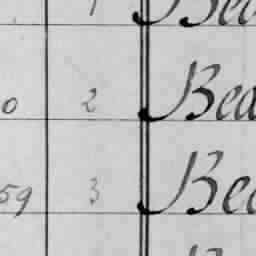 1 Bea
0 2 Bea
59 3 Bea